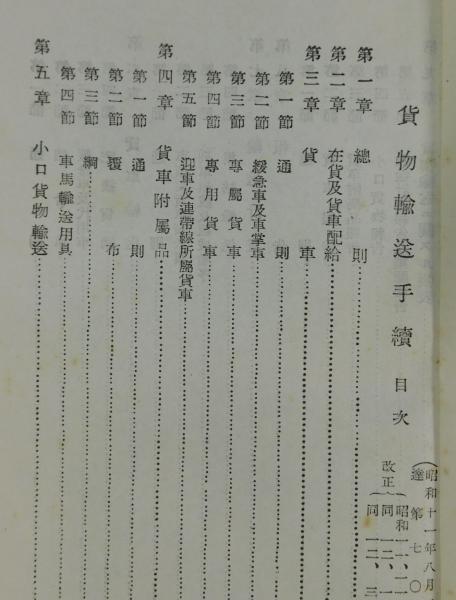 貨物輸送手續目次
(昭和十一年八月
達第七〇
改正
昭和一一、一二
同一二、一
同一二、三
第一章 總則
第二章 在貨及貨車配給
第三章 貨車
第一節 通則
第二節 緩急車及車掌車
第三節 專屬貨車
第四節 專用貨車
第五節 迎車及連帶線所屬貨車
第四章 貨車附屬品
第一節 通則
第二節 覆布
第三節 綱
第四節 車馬輸送用具
第五章 小口貨物輸送